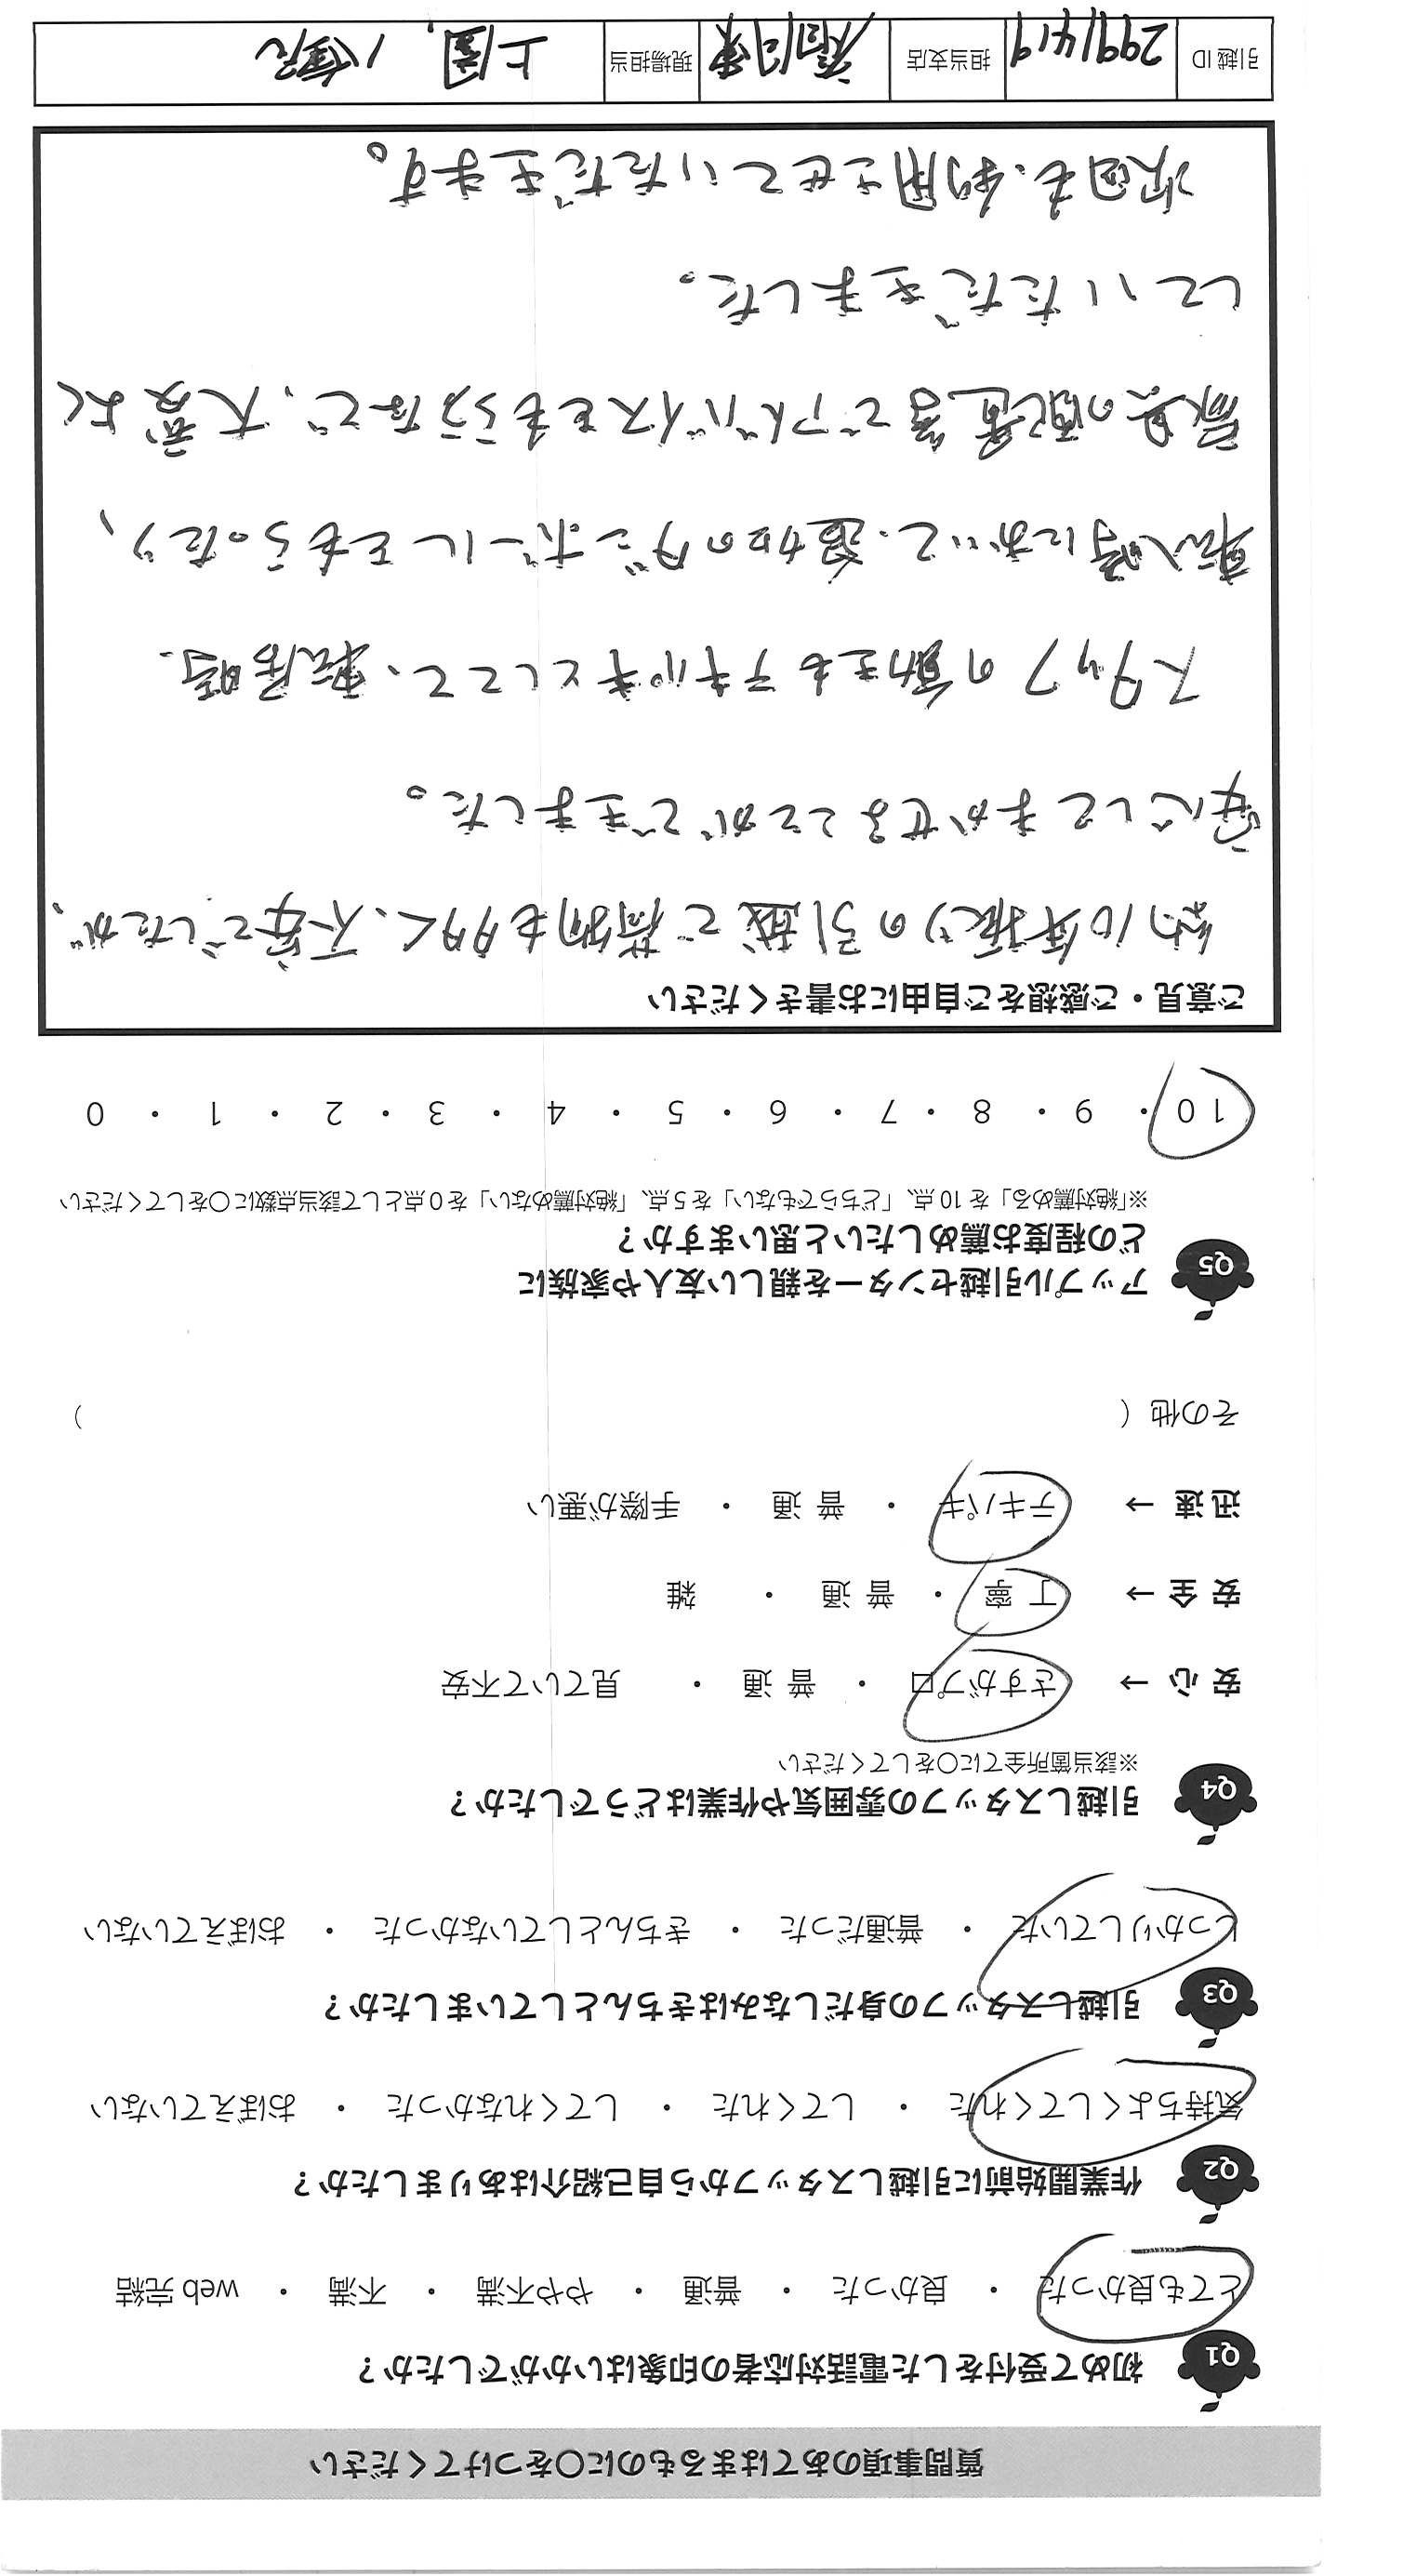 質問事項のあてはまるものに○をつけてください
Q1 初めて受付をした電話対応者の印象はいかがでしたか？
とても良かった ・ 良かった ・ 普通 ・ やや不満 ・ 不満 ・ web 完結
Q2 作業開始前に引越しスタッフから自己紹介はありましたか？
気持ちよくしてくれた ・ してくれた ・ してくれなかった ・ おぼえていない
Q3 引越しスタッフの身だしなみはきちんとしていましたか？
しっかりしていた ・ 普通だった ・ きちんとしていなかった ・ おぼえていない
Q4 引越しスタッフの雰囲気や作業はどうでしたか？
※該当箇所全てに○をしてください
安 心 → さすがプロ ・ 普 通 ・ 見ていて不安
安 全 → 丁 寧 ・ 普 通 ・ 雑
迅 速 → テキパキ ・ 普 通 ・ 手際が悪い
その他（ ）
Q5 アップル引越センターを親しい友人や家族に
どの程度お薦めしたいと思いますか？
※「絶対薦める」を 10 点、「どちらでもない」を 5 点、「絶対薦めない」を 0 点として該当点数に○をしてください
10 ・ 9 ・ 8 ・ 7 ・ 6 ・ 5 ・ 4 ・ 3 ・ 2 ・ 1 ・ 0
ご意見・ご感想をご自由にお書きください
約10年振りの引越で荷物も多く、不安でしたが、
安心してまかせることができました。
スタッフの動きもテキパキとしてて、転居時、
転入時において、追加のダンボールをもらったり、
家具の配置等でアドバイスをもらうなで、大変よく
していただきました。
次回も、利用させていただきます。
引越 ID 2991419 担当支店 現場担当 上園、